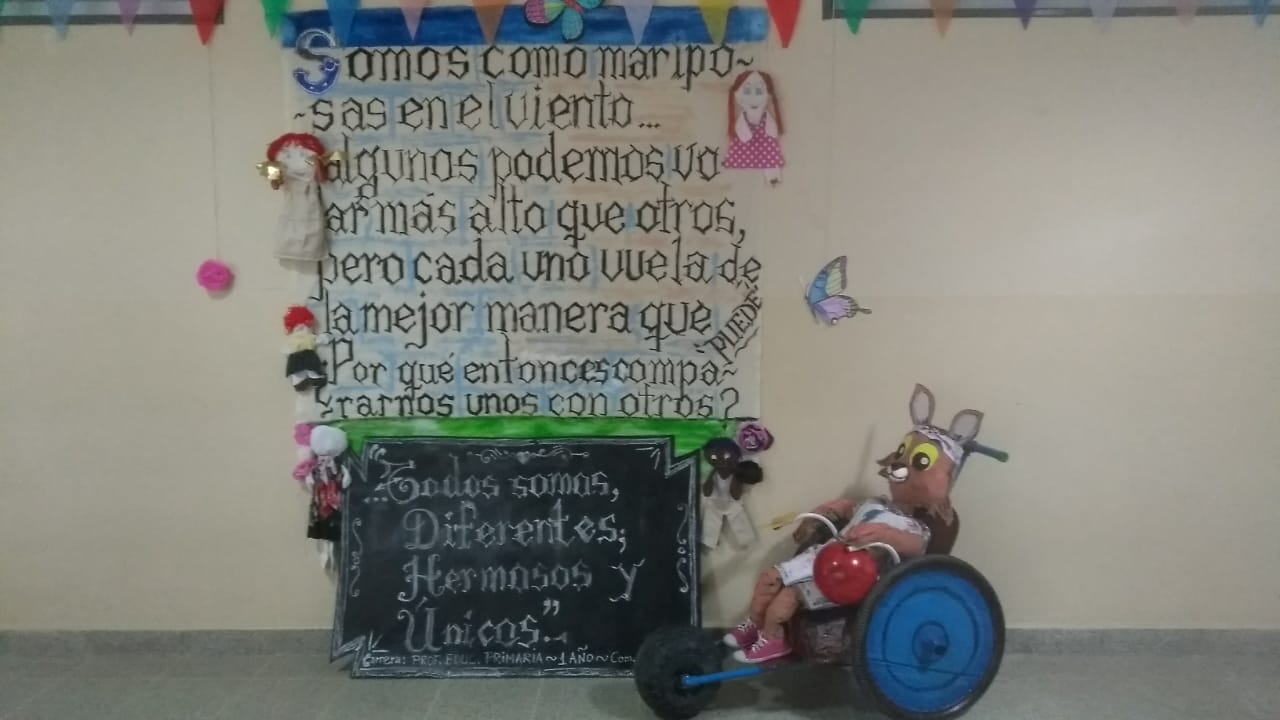 Somos como maripo~
~sas en el viento...
algunos podemos vo
ar más alto que otros,
pero cada uno vuela de
la mejor manera que
PUEDE.
Por qué entonces compa~
~rarnos unos con otros?
"...Todos somos,
Diferentes;
Hermosos y
Únicos"...
Carrera: PROF. EDUC. PRIMARIA ~ 1 AÑO ~ Com.